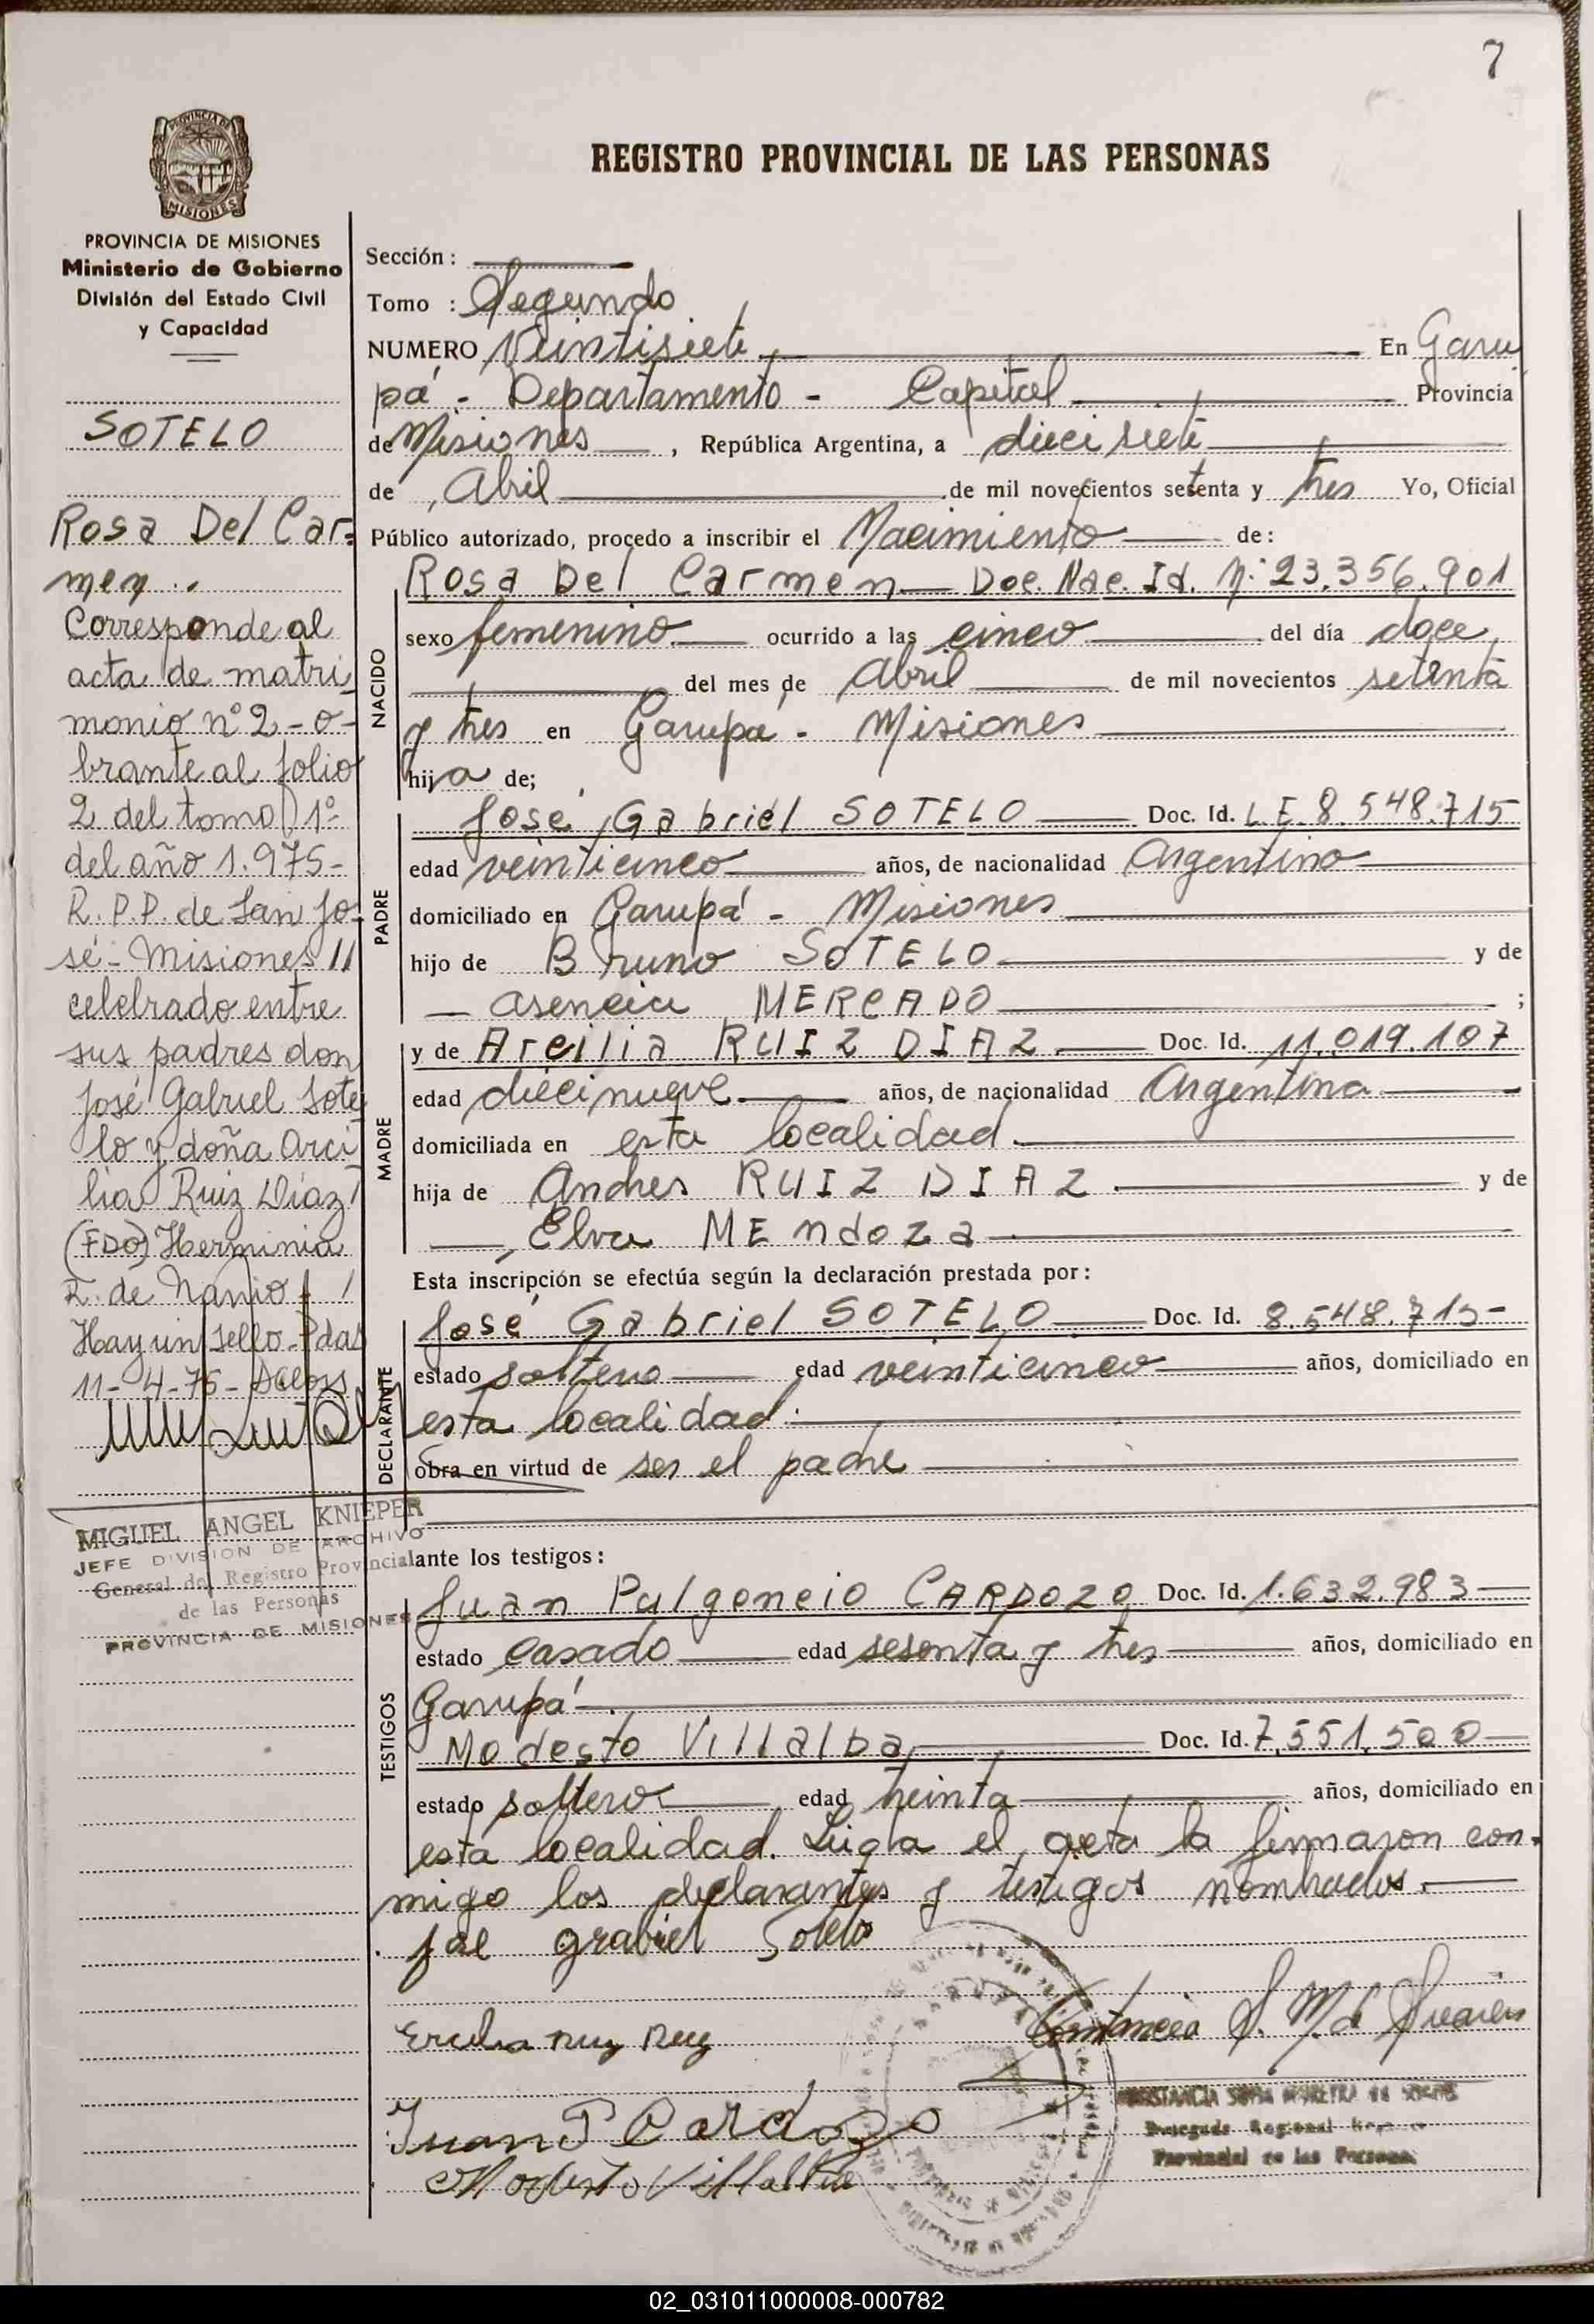 7
PROVINCIA DE
MISIONES
PROVINCIA DE MISIONES
Ministerio de Gobierno
División del Estado Civil
y Capacidad
SOTELO
Rosa Del Car=
men..
Corresponde al
acta de matri
monio nº 2 - o-
brante al folio
2 del tomo 1º
del año 1.975-
R. P. P. de San Jo-
sé - Misiones //
celebrado entre
sus padres don
José Gabriel Sote
lo y doña Arci
lia Ruiz Díaz/
(FDO) Herminia
R. de
Hay un sello. Pdas
11-4-75-
MIGUEL ANGEL KNIEPER
JEFE DIVISION DE ARCHIVO
General del Registro Provincial
de las Personas
PROVINCIA DE MISIONES
REGISTRO PROVINCIAL DE LAS PERSONAS
Sección :
Tomo : Segundo
NUMERO Veintisiete En Garu
pá - Departamento - Capital Provincia
de Misiones , República Argentina, a diecisiete
de Abril de mil novecientos setenta y tres Yo, Oficial
Público autorizado, procedo a inscribir el Nacimiento de:
NACIDO
Rosa Del Carmen Doc. Nac. Id. Nº 23.356.901
sexo femenino ocurrido a las cinco del día doce
del mes de Abril de mil novecientos setenta
y tres en Garupá - Misiones
hija de;
PADRE
José Gabriel SOTELO Doc. Id. L.E. 8.548.715
edad veinticinco años, de nacionalidad Argentino
domiciliado en Garupá - Misiones
hijo de Bruno SOTELO y de
asencia MERCADO ;
MADRE
y de Arcilia RUIZ DIAZ Doc. Id. 11.019.107
edad diecinueve años, de nacionalidad Argentina
domiciliada en esta localidad.
hija de Andres RUIZ DIAZ y de
Elva MENdoza
Esta inscripción se efectúa según la declaración prestada por:
DECLARANTE
José Gabriel SOTELO Doc. Id. 8.548.715-
estado soltero edad veinticinco años, domiciliado en
esta localidad.
obra en virtud de ser el padre
ante los testigos:
TESTIGOS
Juan Pulgencio CARDOZO Doc. Id. 1.632.983
estado casado edad sesenta y tres años, domiciliado en
Garupá
Modesto Villalba Doc. Id. 7.551.500
estado soltero edad treinta años, domiciliado en
esta localidad. Leída el acta la firmaron con-
migo los declarantes y testigos nombrados.
Jose grabiel Sotelo
Constancia S. M. de
Juan P Cardozo
Modesto Villalba
CONSTANCIA SOFIA MOREYRA de
Delegada Regional
Provincial de las Personas
02_031011000008-000782